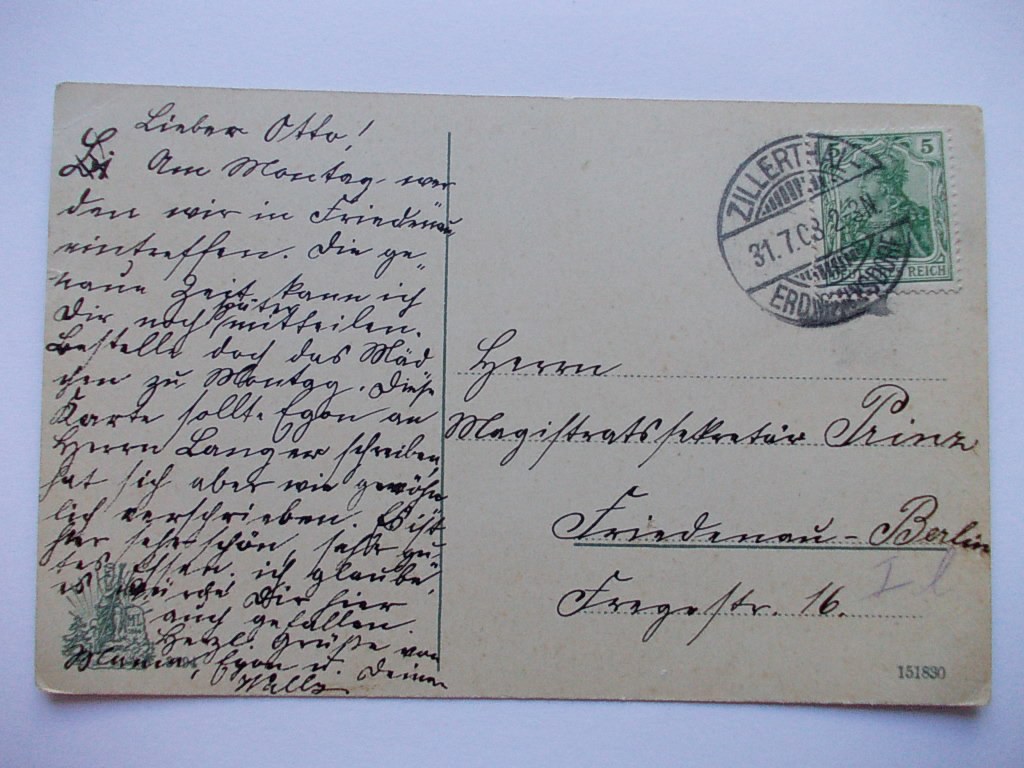 Lieber Otto!
Am Montag wer
den wir in Friedenau
eintreffen. Die ge„
naue Zeit kann ich
Dir noch später mitteilen.
Bestelle doch das Mäd
chen zu Montag. Diese
Karte sollte Egon an
Herrn Langer schreiben,
hat sich aber wie gewöhn
lich verschrieben. Es ist
hier sehr schön, sehr gu
tes Essen, ich glaube,
es würde Dir hier
auch gefallen.
Herzl. Grüße von
Mama, Egon u. Deiner
ZILLERTHAL-
31.7.08. 2-3N.
ERDMANNSDORF
5 5
REICH
Herrn
Magistratssekretär Prinz
Friedenau - Berlin
Fregestr. 16.
151830